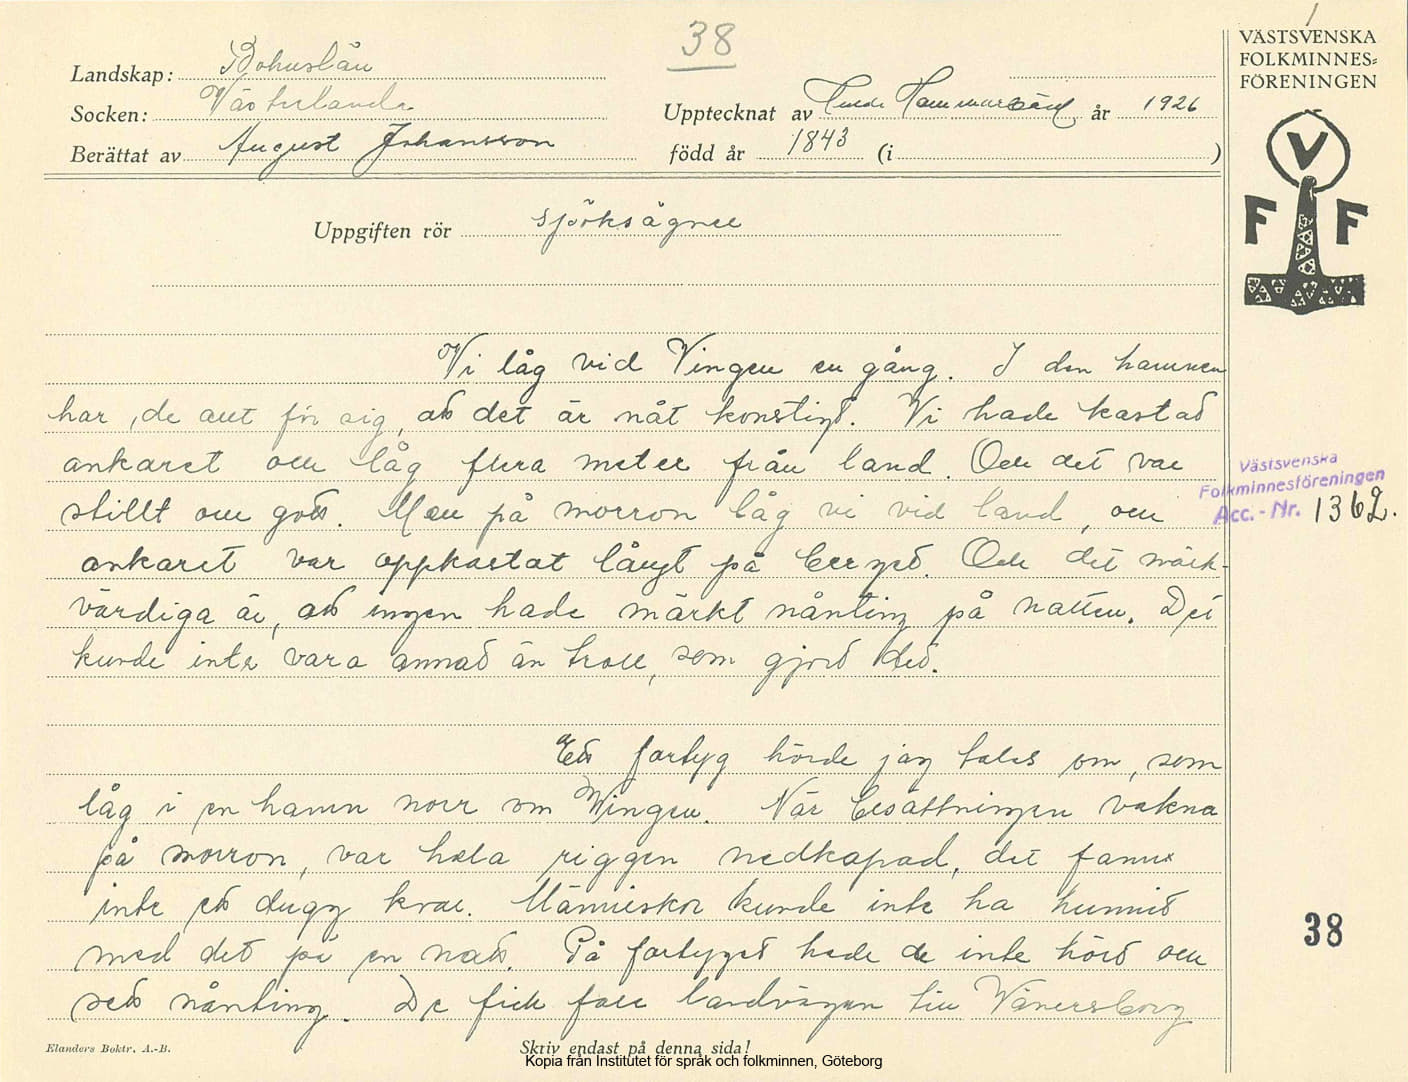 38
VÄSTSVENSKA
FOLKMINNES=
FÖRENINGEN
V
F F
Landskap: Bohuslän
Socken: Västerlanda
Upptecknat av Hammarsärd år 1926
Berättat av August Johansson
född år 1843 (i )
Uppgiften rör Sjöksägner
Vi låg vid Vingen en gång. I den hamnen
har de att för sig, att det är nåt konstigt. Vi hade kastat
ankaret och låg flera meter från land. Och det var
stillt och gott. Men på morron låg vi vid land, och
ankaret var oppkastat långt på berget. Och det märk-
värdiga är, att ingen hade märkt nånting på natten. Det
kunde inte vara annat än troll, som gjort det.
Västsvenska
Folkminnesföreningen
Acc.-Nr. 1362.
Ett fartyg hörde jag talas om, som
låg i en hamn norr om Wingen. När besättningen vakna
på morron, var hela riggen nedkapad, det fanns
inte ett dugg kvar. Människor kunde inte ha hunnit
med det på en natt. På fartyget hade de inte hört och
sett nånting. De fick fara landvägen till Vänersborg
38
Elanders Boktr. A.-B.
Skriv endast på denna sida!
Kopia från Institutet för språk och folkminnen, Göteborg